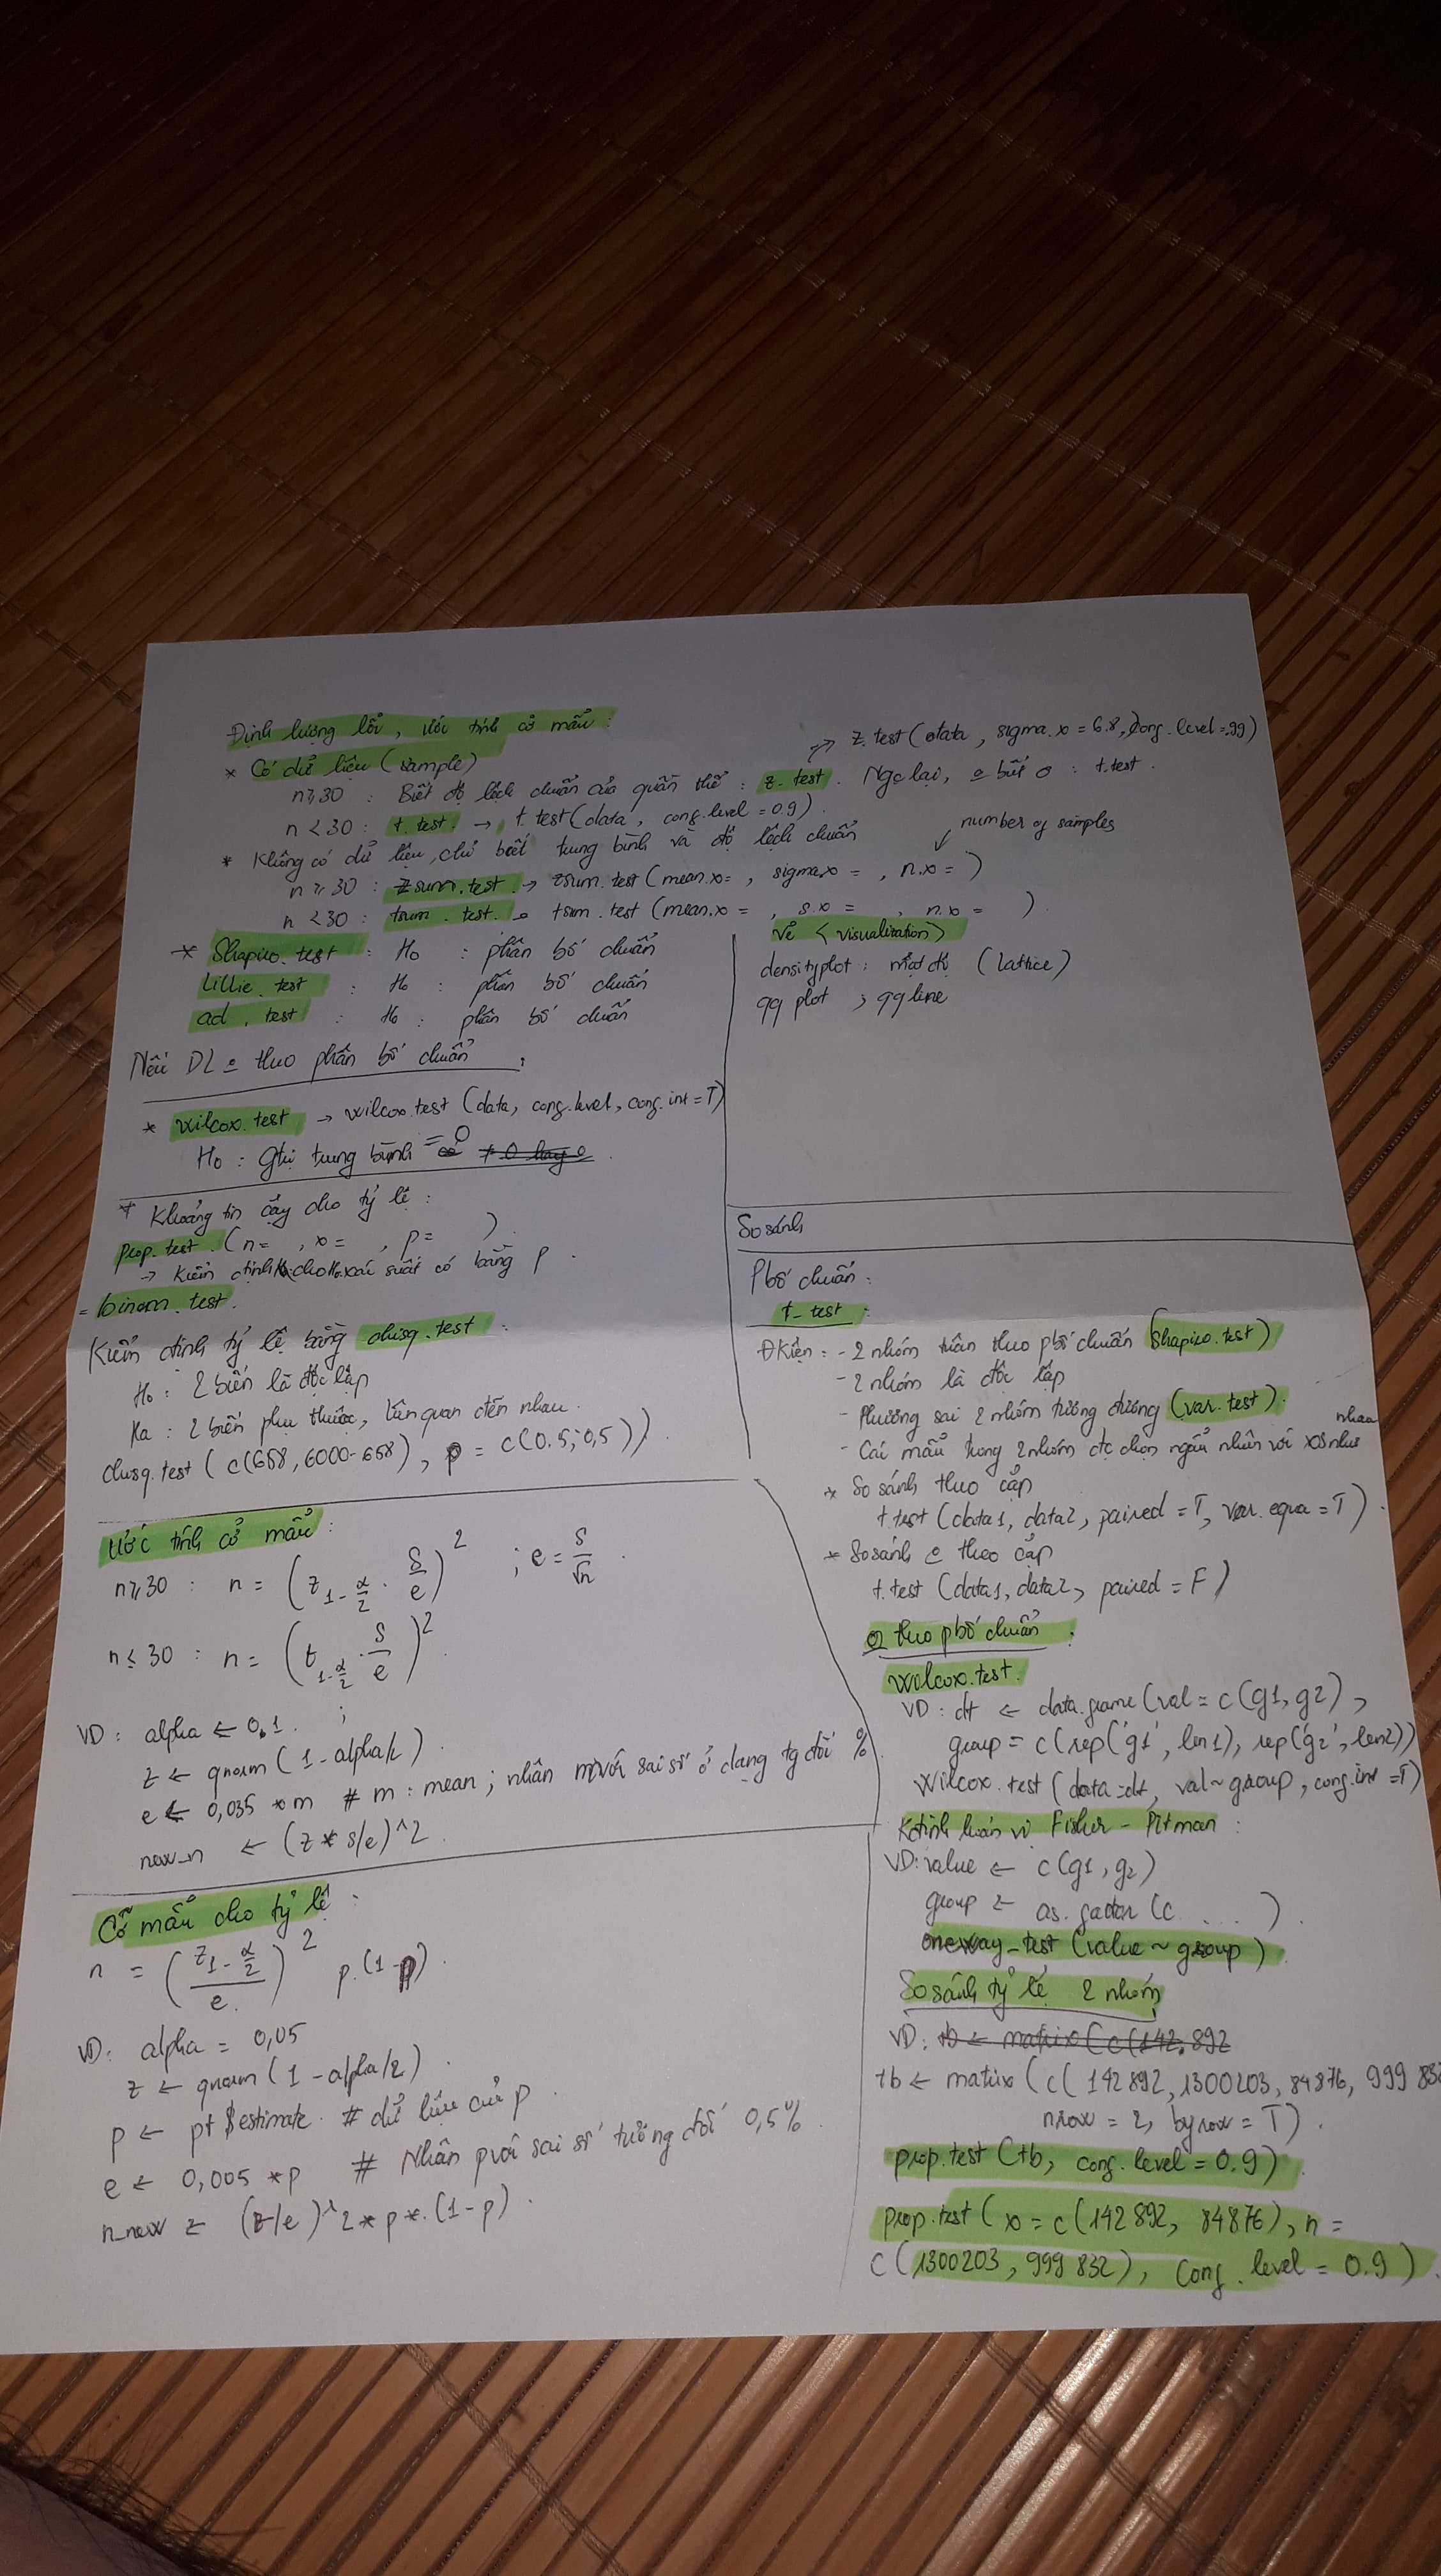 Định lượng lỗi, ước tính cỡ mẫu :
* Có dữ liệu (sample)
→ z.test(data, sigma.x = 6.8, conf.level=.99)
n≥30 : Biết độ lệch chuẩn của quần thể : z.test. Ngc lại, o biết σ : t.test.
n <30 : t.test. → t.test(data, conf.level = 0.9).
* Không có dữ liệu, chỉ biết trung bình và độ lệch chuẩn
number of samples
n ≥ 30 : zsum.test. → zsum.test (mean.x= , sigma.x = , n.x = )
n <30 : tsum.test. → tsum.test (mean.x = , s.x = , n.x = ).
* Shapiro.test : H0 : phân bố chuẩn
Lillie.test : H0 : phân bố chuẩn
ad.test : H0 : phân bố chuẩn
Nếu DL o theo phân bố chuẩn :
* Wilcox.test → wilcox.test (data, conf.level, conf.int = T)
H0 : gtrị trung bình = 0
* Khoảng tin cậy cho tỷ lệ :
prop.test (n= , x= , p= ).
→ Kiểm định cho H0: xác suất có bằng p.
= binom.test.
Kiểm định tỷ lệ bằng chisq.test :
H0 : 2 biến là độc lập
Ha : 2 biến phụ thuộc, liên quan đến nhau.
chisq.test ( c(658, 6000-658), p = c(0.5; 0,5)).
Ước tính cỡ mẫu :
n≥30 : n = (z1-α/2 . S/e)^2 ; e = S/√n.
n≤30 : n = (t1-α/2 . S/e)^2
VD : alpha ← 0,1. ;
z ← qnorm (1-alpha/2).
e ← 0,035 * m # m : mean ; nhân m với sai số ở dạng tg đối %.
new_n ← (z * s/e)^2.
Cỡ mẫu cho tỷ lệ :
n = (z1-α/2 / e.)^2 p.(1-p).
VD: alpha = 0,05
z ← qnorm(1-alpha/2).
p ← pt$estimate. # dữ liệu của p.
e ← 0,005 *p # Nhân p với sai số tương đối 0,5%.
n_new ← (z/e)^2 * p*.(1-p).
Vẽ <visualization>
densityplot : mật độ (lattice)
qq plot ; qq line
So sánh
Pbố chuẩn :
t-test :
ĐKiện : - 2 nhóm tuân theo pbố chuẩn (Shapiro.test)
- 2 nhóm là độc lập
- Phương sai 2 nhóm tương đương (var.test).
- Các mẫu trong 2 nhóm đc chọn ngẫu nhiên với XS như nhau
* So sánh theo cặp
t.test (data1, data2, paired = T, var.equa = T).
* So sánh o theo cặp
t.test (data1, data2, paired = F)
o theo pbố chuẩn :
Wilcox.test.
VD : dt ← data.frame (val = c(g1, g2),
group = c(rep('g1', len1), rep('g2', len2))
Wilcox.test (data=dt, val~group, conf.int =T)
Kđịnh hoán vị Fisher - Pitman :
VD: value ← c(g1, g2)
group ← as.factor (c .... ).
oneway_test (value ~ group).
So sánh tỷ lệ 2 nhóm
VD: tb ← matrix (c(142.892
tb ← matrix (c( 142892, 1300203, 84876, 999 832
nrow = 2, byrow = T).
prop.test (tb, conf.level = 0.9).
prop.test ( x = c(142 892, 84876), n =
c(1300203, 999 832), conf.level = 0.9).